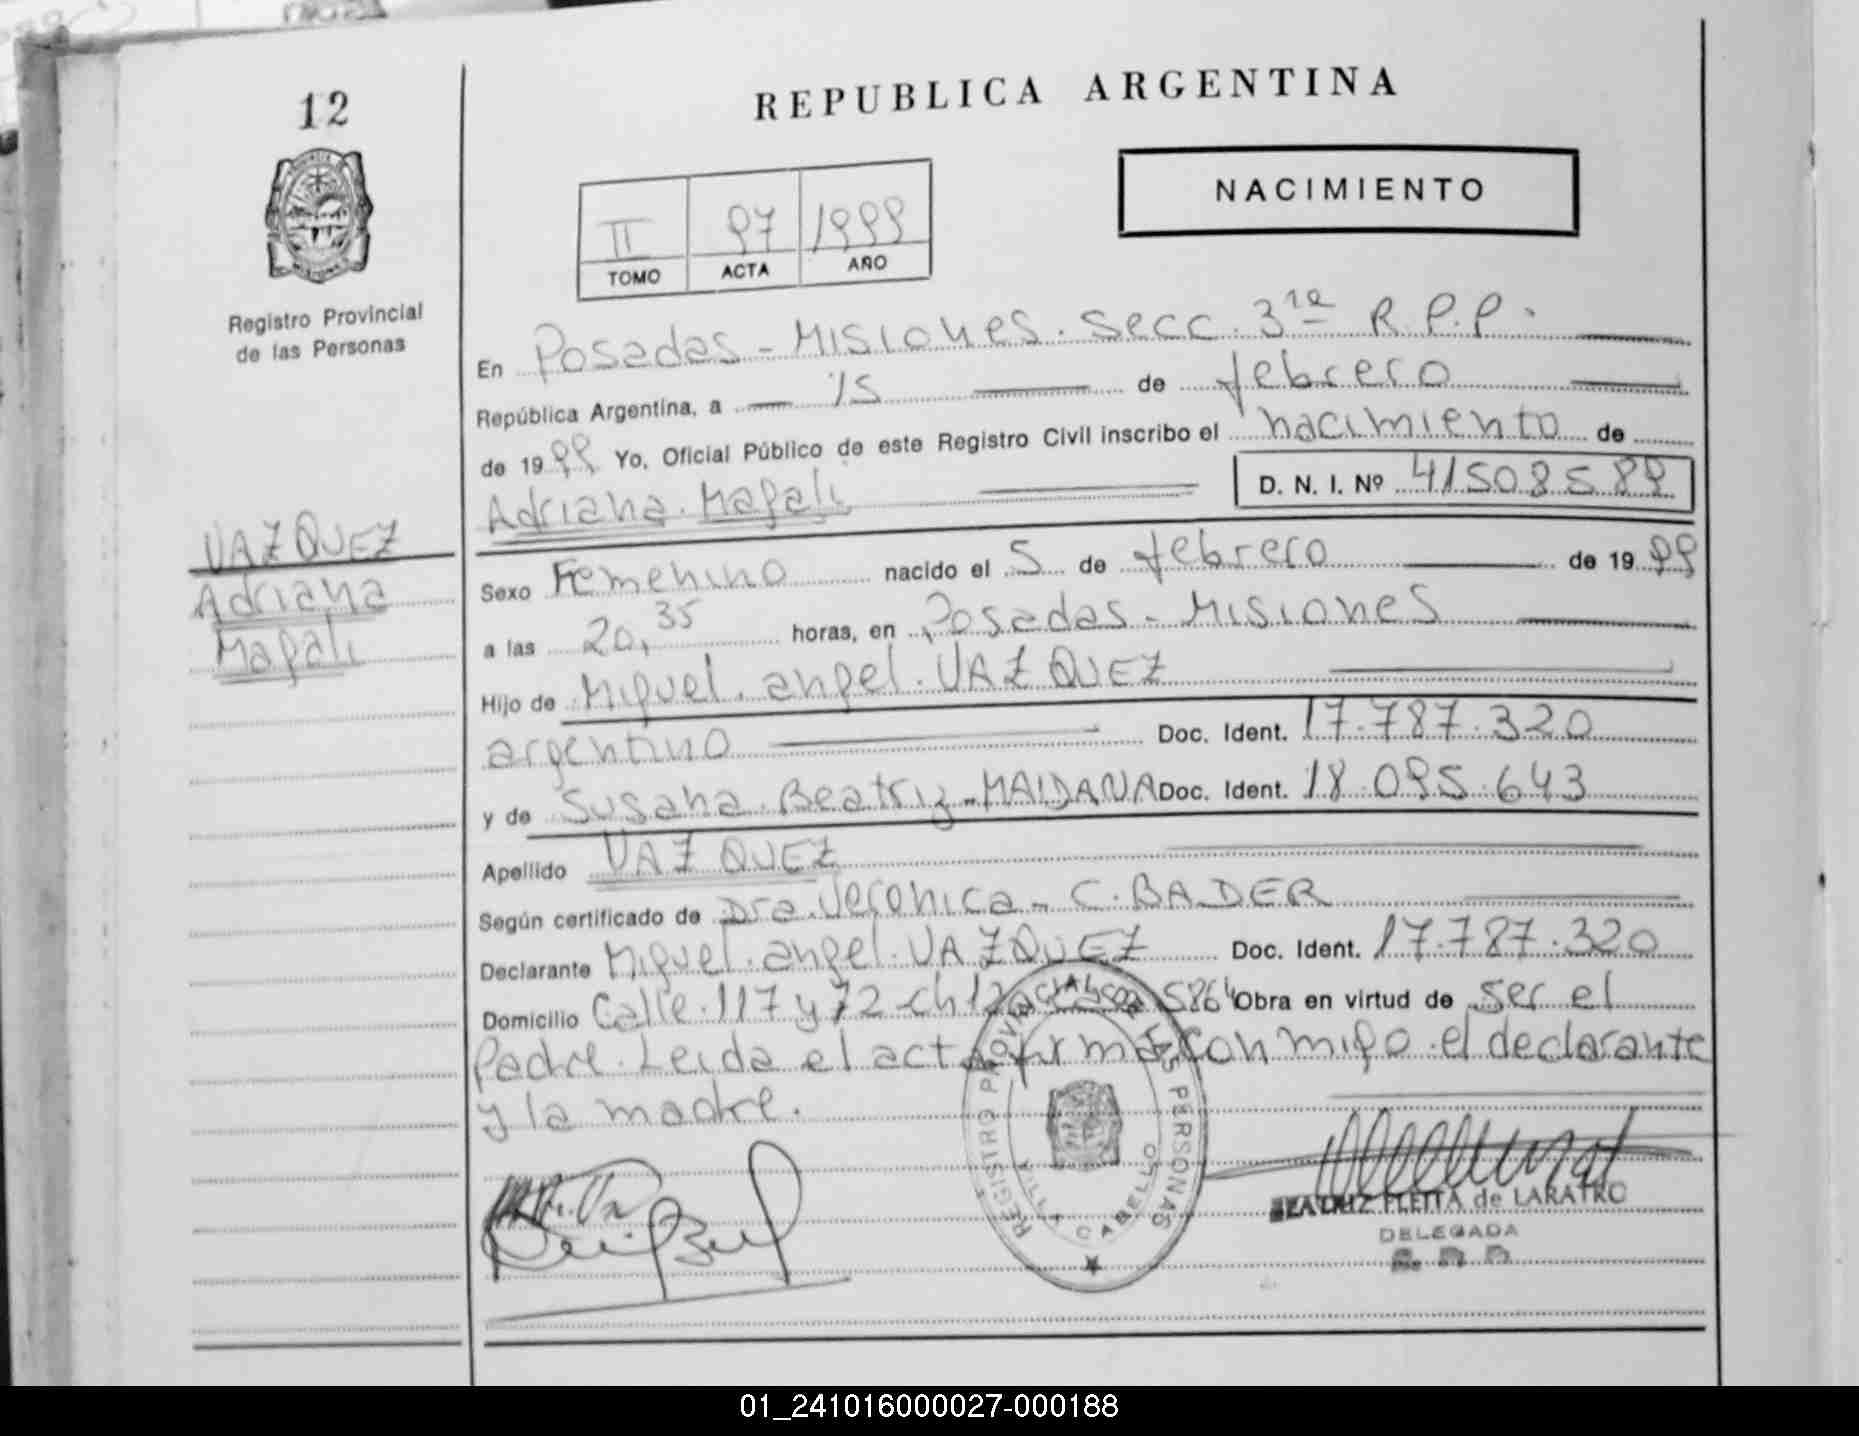 12
REPUBLICA ARGENTINA
NACIMIENTO
II 97 1999
TOMO ACTA AÑO
Registro Provincial
de las Personas
En Posadas - Misiones. Secc. 3ra R.P.P.
República Argentina, a 15 de febrero
de 1999 Yo, Oficial Público de este Registro Civil inscribo el nacimiento de
Adriana Magali D. N. I. Nº 41508589
VAZQUEZ
Adriana
Magali
Sexo Femenino nacido el 5 de febrero de 1999
a las 20,35 horas, en Posadas - Misiones
Hijo de Miguel angel VAZQUEZ
argentino Doc. Ident. 17.787.320
y de Susana Beatriz - MAIDANA Doc. Ident. 18.095.643
Apellido VAZQUEZ
Según certificado de Dra. Veronica - C. BADER
Declarante Miguel angel VAZQUEZ Doc. Ident. 17.787.320
Domicilio Calle 117 y 72 - ch 12 Obra en virtud de ser el
Padre. Leida el acta firma con migo el declarante
y la madre.
REGISTRO PROVINCIAL DE LAS PERSONAS
VILLA CABELLO
BEATRIZ FLEITA de LARATRO
DELEGADA
01_241016000027-000188